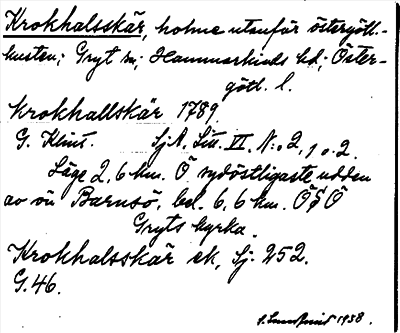 Krokhalsskär, holme utanför östergötl.-
kusten; Gryt sn; Hammarkinds hd; Öster-
götl. l.
Krokhallskär 1789.
G. Klint. SjA. Litt. VI. N:o 2, 1 o. 2.
Läge 2,6 km. Ö sydöstligaste udden
av ön Barnsö, bel. 6,6 km. ÖSÖ
Gryts kyrka.
Krokhalsskär ek, Sj. 252.
G. 46.
1938.